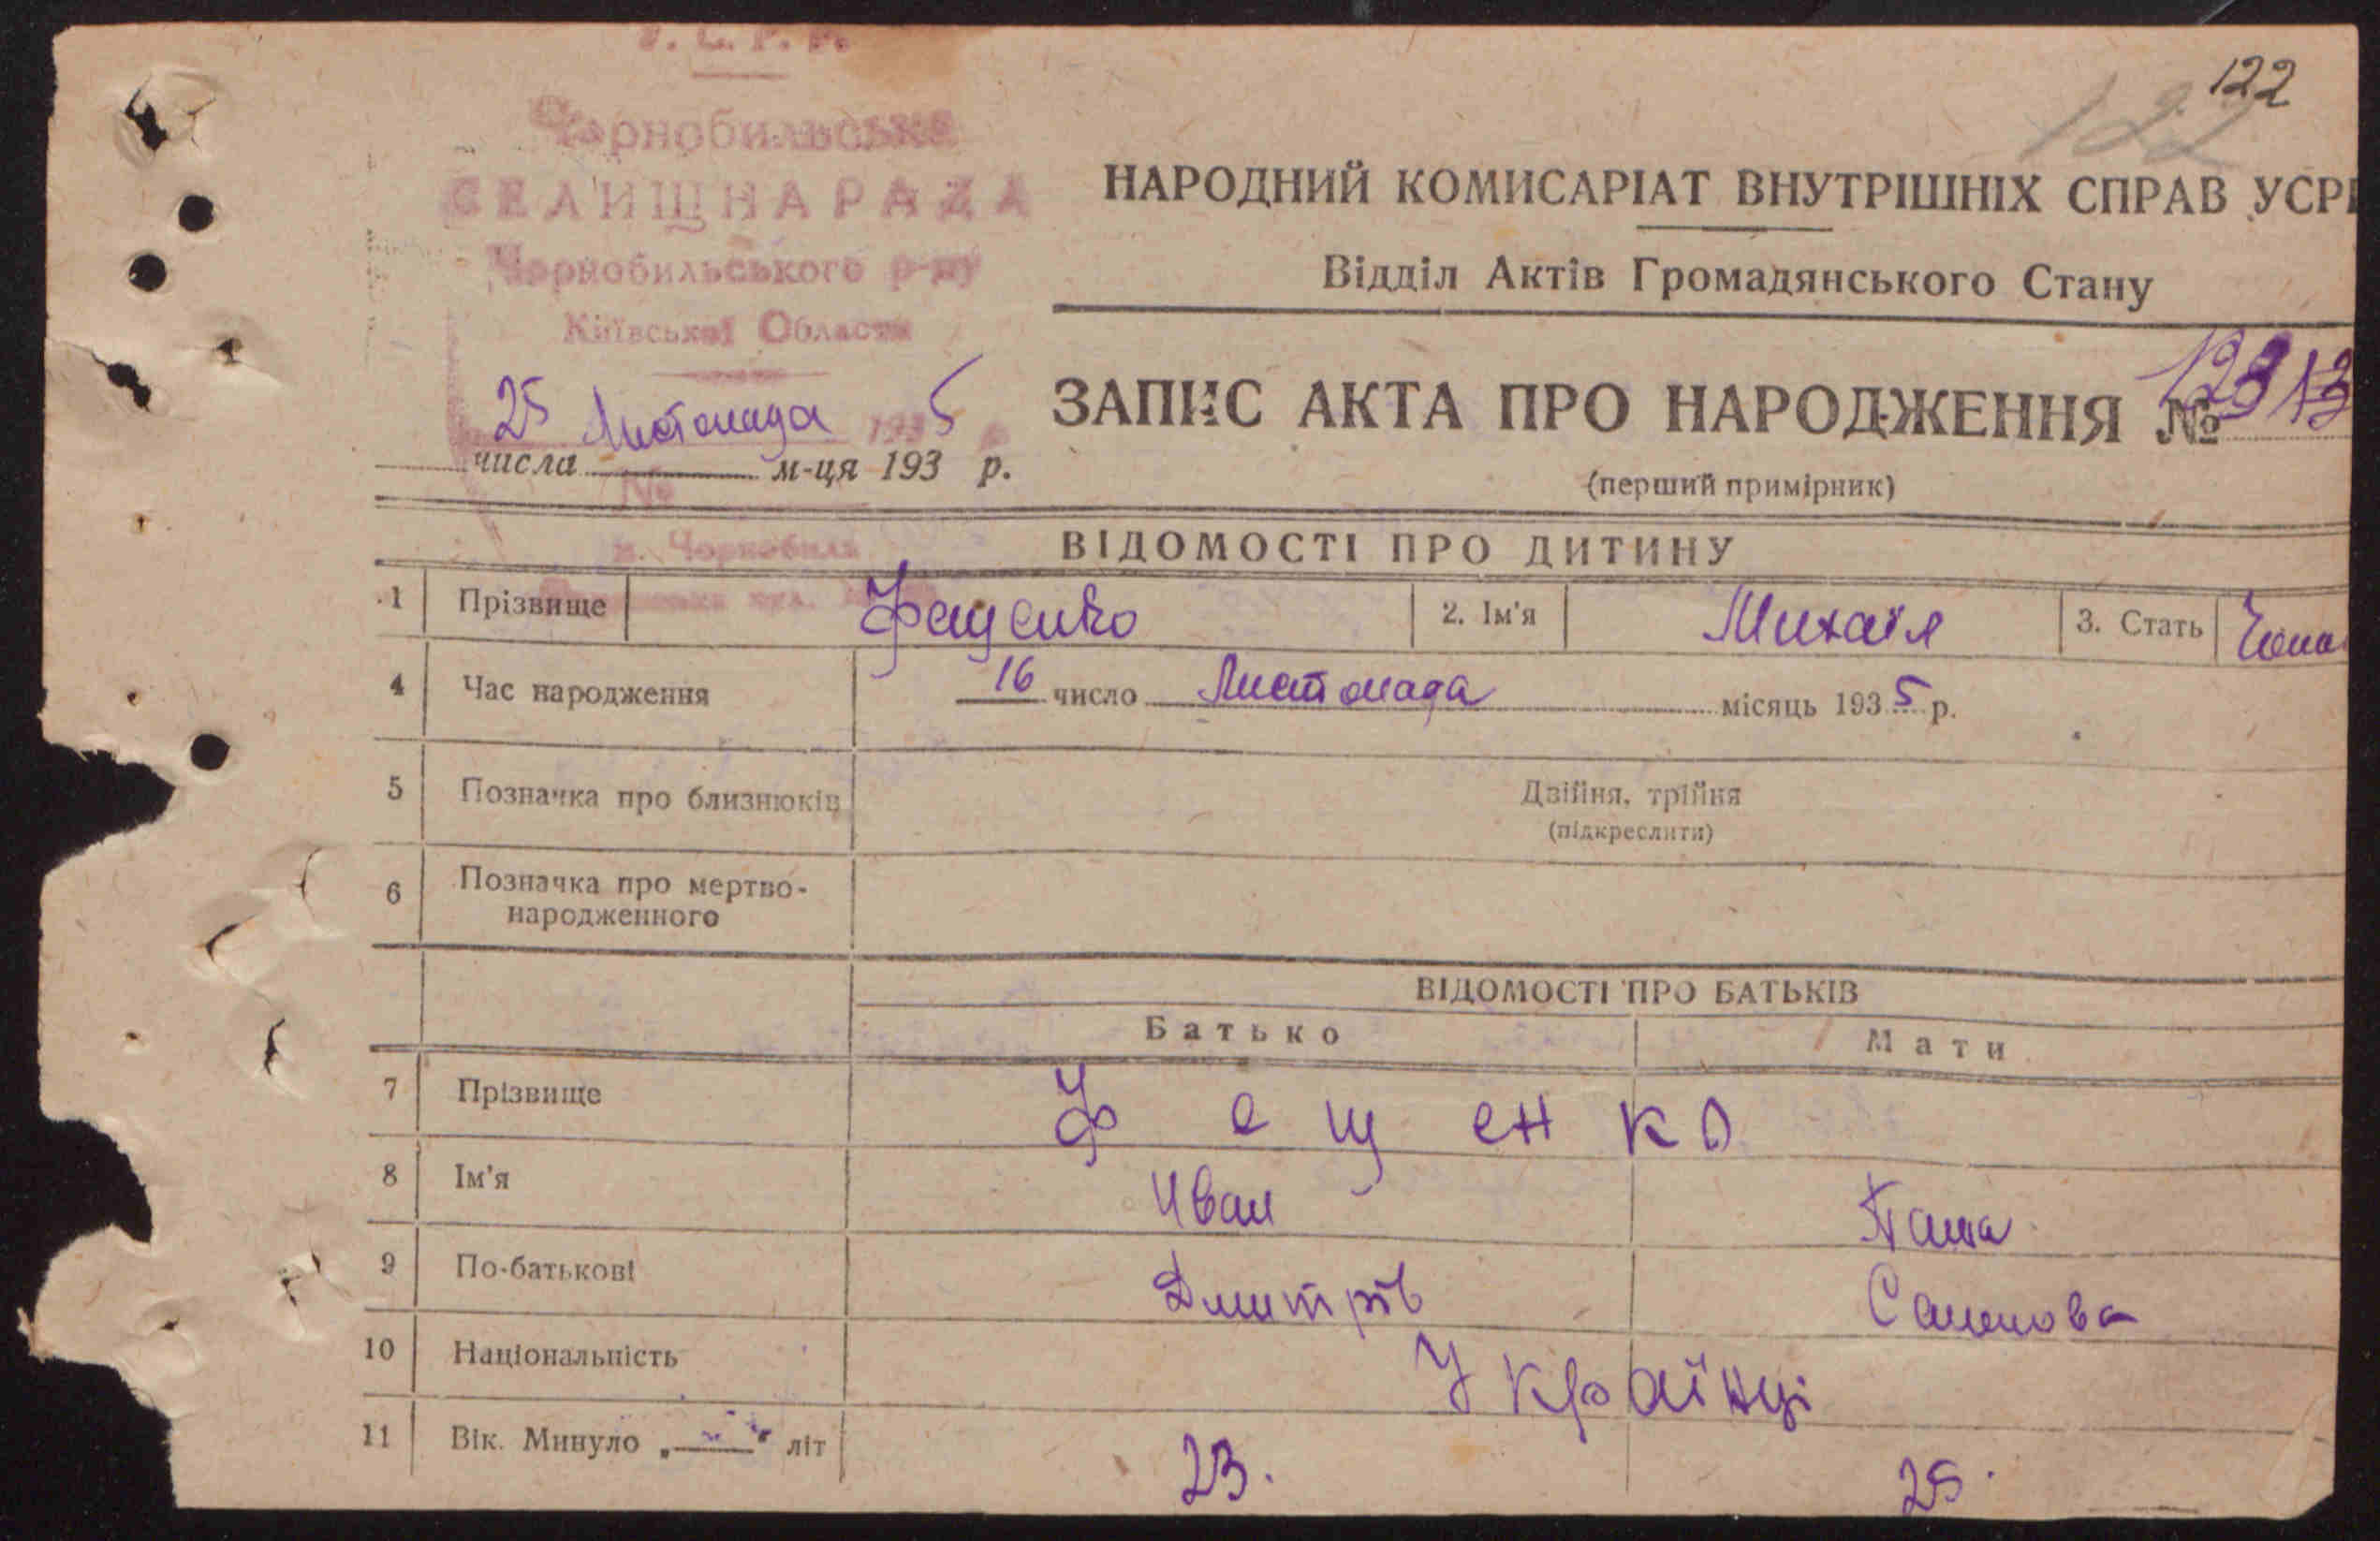 У. С. Р. Р.
122
122
Чорнобильська
СЕЛИЩНА РАДА
Чорнобильського р-ну
Київської Области
НАРОДНИЙ КОМИСАРІАТ ВНУТРІШНІХ СПРАВ УСРР
Відділ Актів Громадянського Стану
25 Листопада 193 5
числа м-ця 193 р.
ЗАПИС АКТА ПРО НАРОДЖЕННЯ №
(перший примірник)
№
м. Чорнобиль
ВІДОМОСТІ ПРО ДИТИНУ
1 Прізвище Фещенко 2. Ім'я Михаїл 3. Стать
4 Час народження 16 число Листопада місяць 1935 р.
5 Позначка про близнюків Двійня, трійня
(підкреслити)
6 Позначка про мертво-
народженного
ВІДОМОСТІ ПРО БАТЬКІВ
Батько Мати
7 Прізвище Фещенко
8 Ім'я Иван Паша
9 По-батькові Дмитрів
10 Національність Українці
11 Вік. Минуло „ " літ 23. 25.